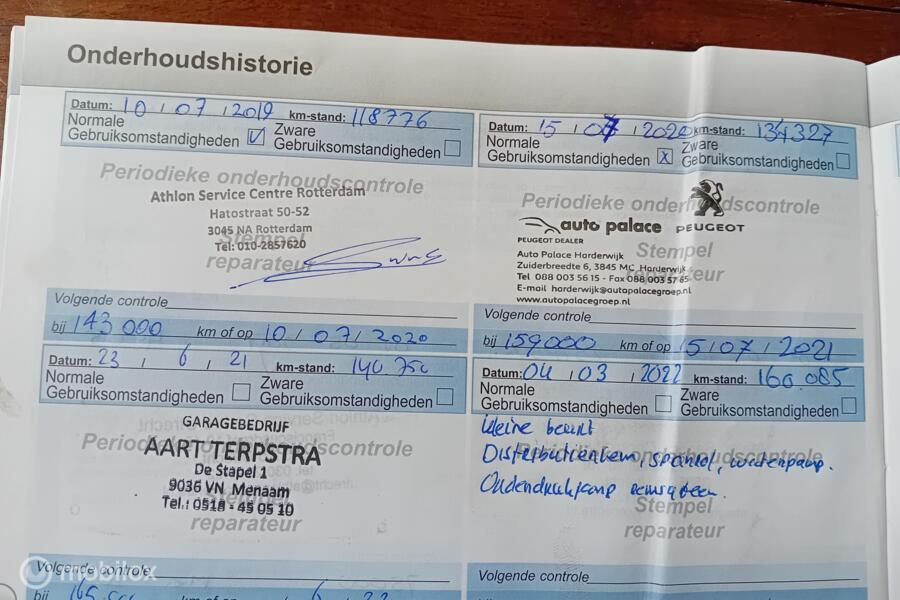 Onderhoudshistorie
Datum: 10 / 07 / 2019 km-stand: 118776
Normale Gebruiksomstandigheden ☑ Zware Gebruiksomstandigheden ☐
Periodieke onderhoudscontrole
Athlon Service Centre Rotterdam
Hatostraat 50-52
3045 NA Rotterdam
Stempel
Tel: 010-2857620
reparateur
Volgende controle
bij 143 000 km of op 10 / 07 / 2020
Datum: 15 / 07 / 2020 km-stand: 134327
Normale Gebruiksomstandigheden ☒ Zware Gebruiksomstandigheden ☐
Periodieke onderhoudscontrole
auto palace PEUGEOT
PEUGEOT DEALER
Stempel
Auto Palace Harderwijk
Zuiderbreedte 6, 3845 MC Harderwijk
reparateur
Tel 088 003 56 15 - Fax 088 003 57 85
E-mail harderwijk@autopalacegroep.nl
www.autopalacegroep.nl
Volgende controle
bij 159000 km of op 15 / 07 / 2021
Datum: 23 / 6 / 21 km-stand: 140 750
Normale Gebruiksomstandigheden ☐ Zware Gebruiksomstandigheden ☐
GARAGEBEDRIJF
Periodieke onderhoudscontrole
AART TERPSTRA
De Stapel 1
9036 VN Menaam
Tel.: 0518 - 45 05 10
reparateur
Volgende controle
km of op 6 / 22
Datum: 04 / 03 / 2022 km-stand: 160.085
Normale Gebruiksomstandigheden ☐ Zware Gebruiksomstandigheden ☐
kleine beurt
Periodieke onderhoudscontrole
Distributieriem, spanrol, waterpomp.
Stempel
reparateur
Volgende controle
mobilox